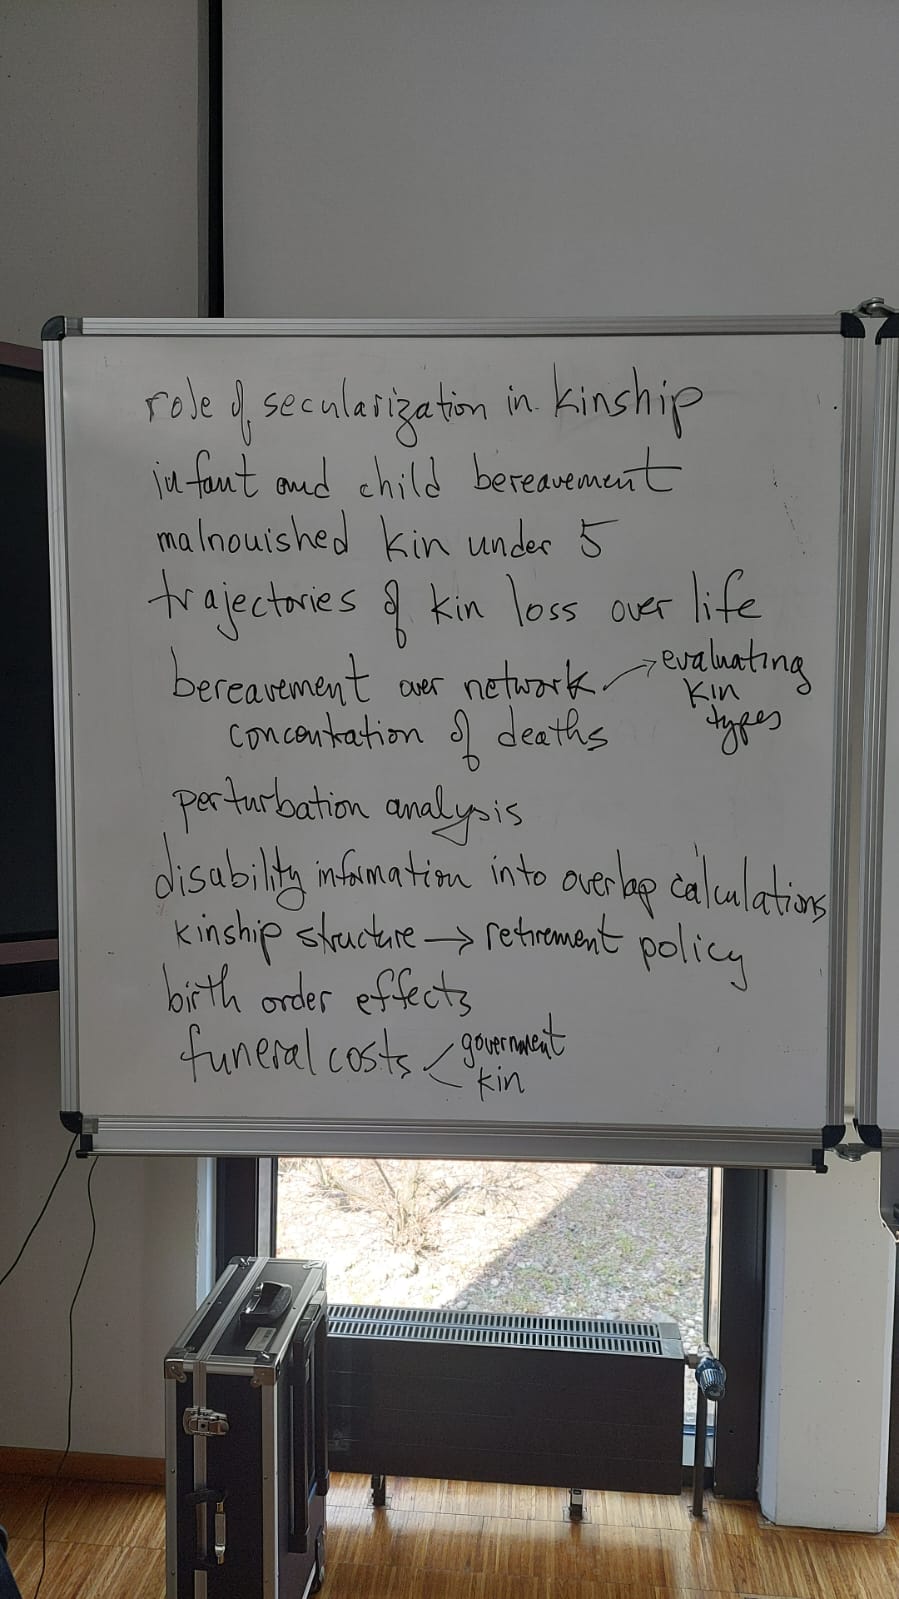 role of secularization in kinship
infant and child bereavement
malnouished kin under 5
trajectories of kin loss over life
bereavement over network → evaluating kin types
concentration of deaths
perturbation analysis
disability information into overlap calculations
kinship structure → retirement policy
birth order effects
funeral costs < government
kin